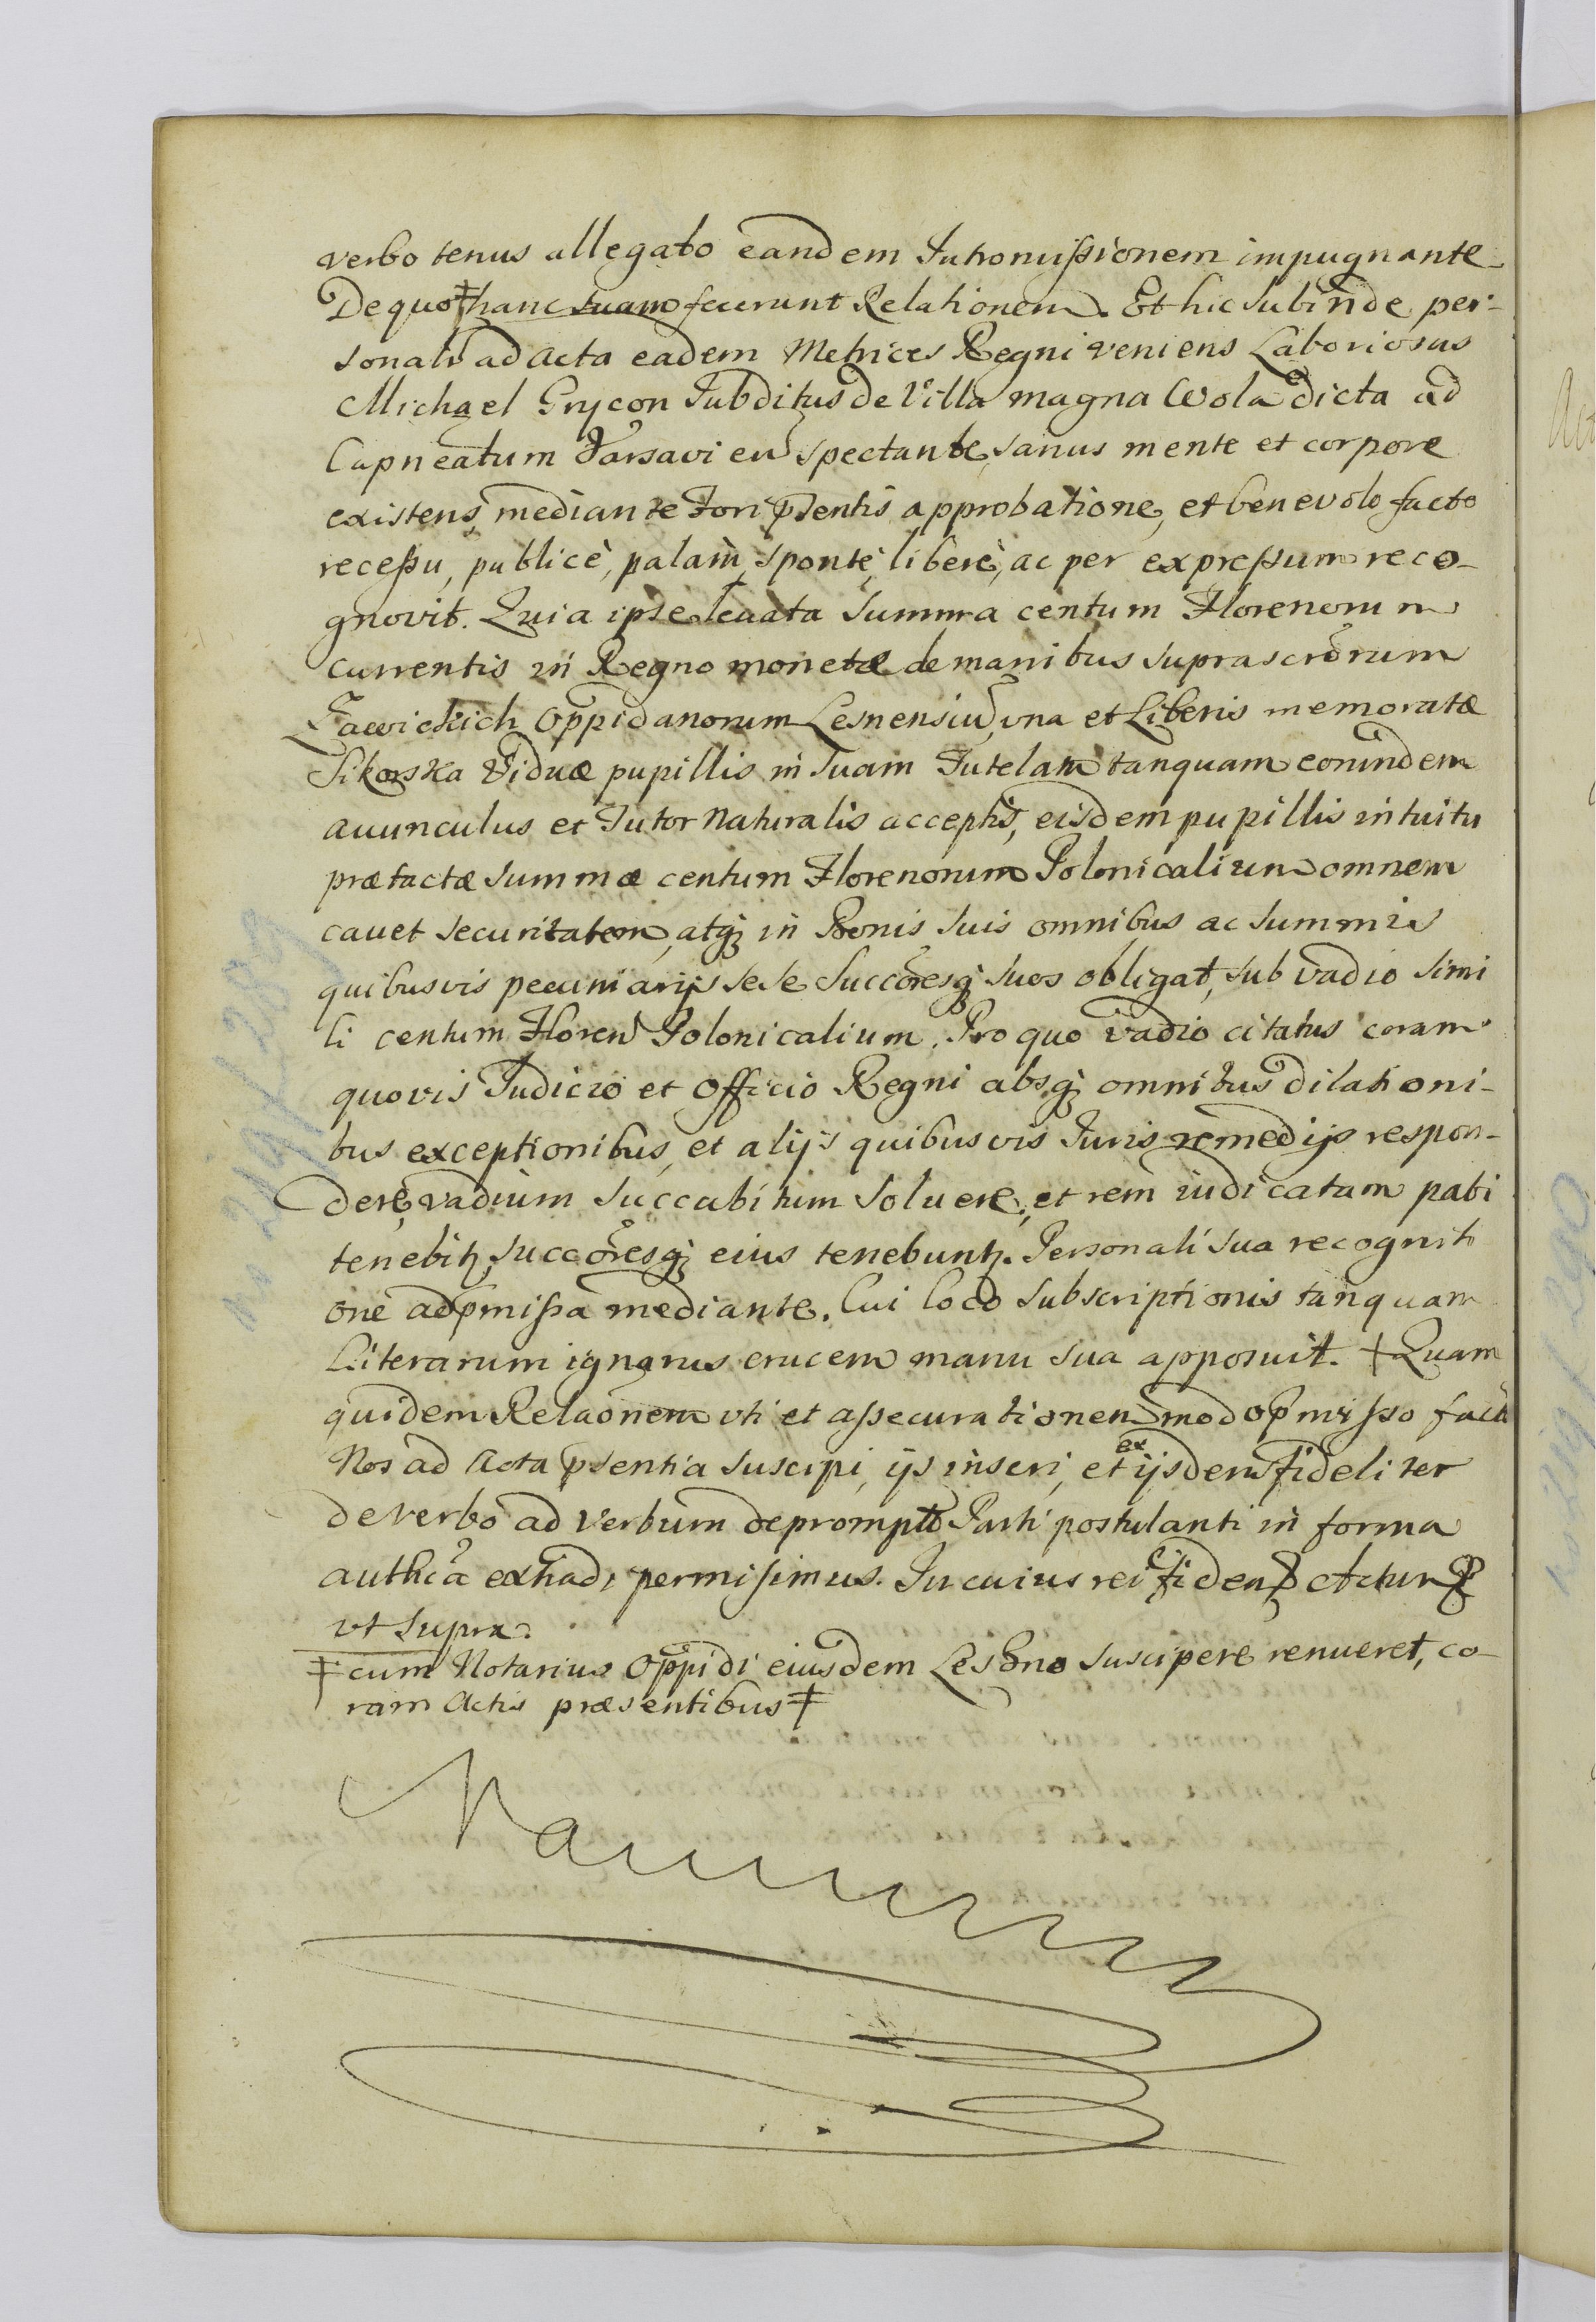 verbo tenus allegato eandem Intromissionem impugnante
De quo ‡ hanc suam fecerunt Relationem. Et hic subinde per-
sonalr ad Acta eadem Metrices Regni veniens Laboriosus
Michael Grycon Subditus de Villa magna Wola dicta ad
Capneatum Varsavien spectante, sanus mente et corpore
existens, mediante Fori pñtentis approbatione, et benevolo facto
recessu, publicè, palàm, sponte, liberè, ac per expressum reco-
gnovit. Quia ipse levata summa centum Florenorum
currentis in Regno monetæ de manibus suprascrõrum
Ławickich Oppidanorum Lesnensiũ, vna et Liberis memoratæ
Sikorska Viduæ pupillis in suam Tutelam tanquam eorundem
avunculus et Tutor Naturalis acceptis, eisdem pupillis intuitu
prætactæ summæ centum Florenorum Polonicalium omnem
cavet securitatem, atq₃ in Bonis suis omnibus ac summis
quibusvis pecuniarijs sese Succõresq₃ suos obligat, sub vadio simi
li centum Floreñ Polonicalium. Pro quo vadio citatus coram
quovis Judicio et Officio Regni absq₃ omnibus dilationi-
bus exceptionibus, et alijs quibusvis Juris remedijs respon-
dere, vadium succubitum soluere, et rem iudicatam pati
tenebitꝝ, succõresq₃ eius tenebuntꝝ. Personali sua recogniti
one ad pmissa mediante. Cui loco subscriptionis tanquam
Literarum ignarus crucem manu sua apposuit. † Quam
quidem Relaõnem vti et assecurationem modo pmisso factã
Nos ad Acta psentia suscipi, ijs inseri, et ex ijsdem fideliter
de verbo ad verbum deprompto Parti postulanti in forma
authcã extradi permisimus. In cuius rei fidem Actum
vt supra.
‡ cum Notarius Oppidi eiusdem Leszno suscipere renueret, co-
ram Actis præsentibus ‡